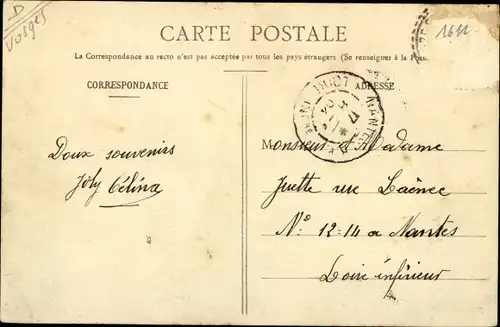 D
Vosges
CARTE POSTALE
1611
La Correspondance au recto n'est pas acceptée par tous les pays étrangers (Se renseigner à la Pos
CORRESPONDANCE
ADRESSE
NANTES
17
04
Doux souvenirs
Joly Célina
Monsieur et Madame
Juette rue Laënec
N° 12-14 a Nantes
Loire inférieur